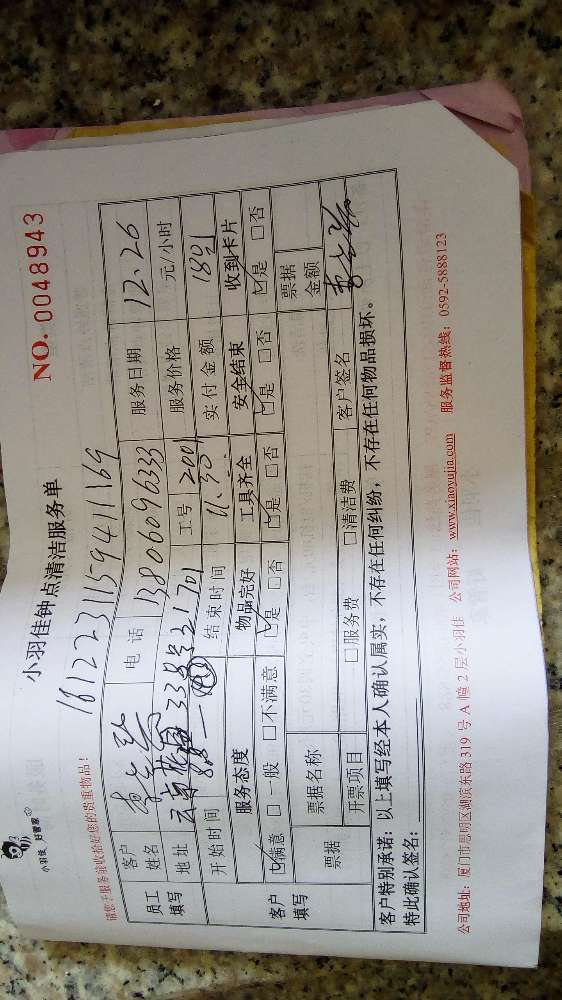 小羽佳 好管家
小羽佳钟点清洁服务单
NO. 0048943
请您于服务前收拾好您的贵重物品!
161223115941169
员工填写 客户姓名 电话 13806096333 服务日期 12.26
地址 工号 2001 服务价格 元/小时
开始时间 结束时间 11.30 实付金额
客户填写 服务态度 物品完好 工具齐全 安全结束 收到卡片
☑满意 □一般 □不满意 ☑是 □否 ☑是 □否 ☑是 □否 ☑是 □否
票据 票据名称 票据金额
开票项目 □服务费 □清洁费 客户签名
客户特别承诺:以上填写经本人确认属实,不存在任何纠纷,不存在任何物品损坏。
特此确认签名:
公司地址:厦门市思明区湖滨东路 319 号 A 幢 2 层小羽佳 公司网站:www.xiaoyujia.com 服务监督热线:0592-5888123